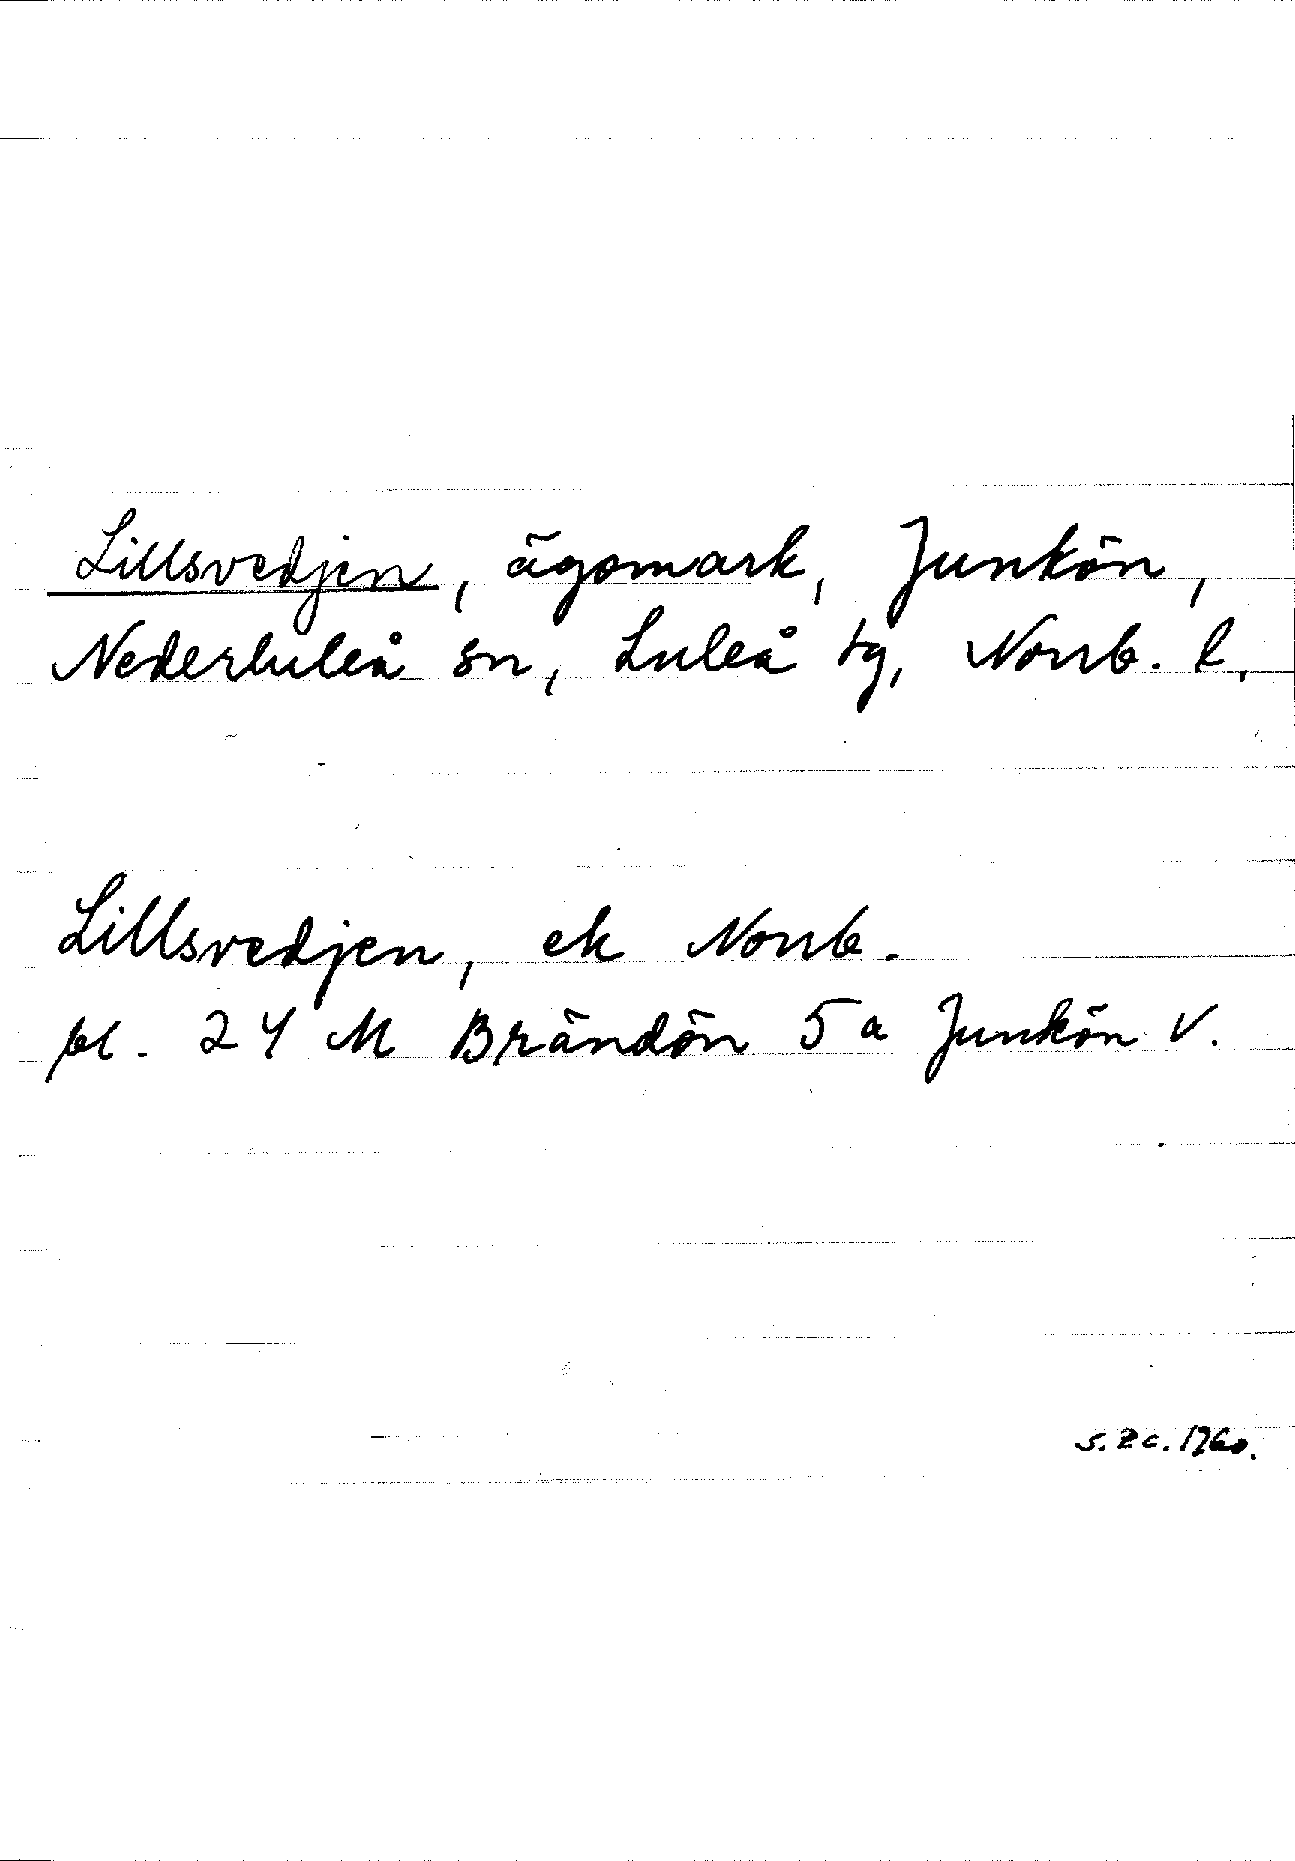 Lillsvedjen, ägomark, Junkön,
Nederluleå sn, Luleå tg, Norrb. l.
Lillsvedjen, ek Norrb.
bl. 24 M Brändön 5 a Junkön V.